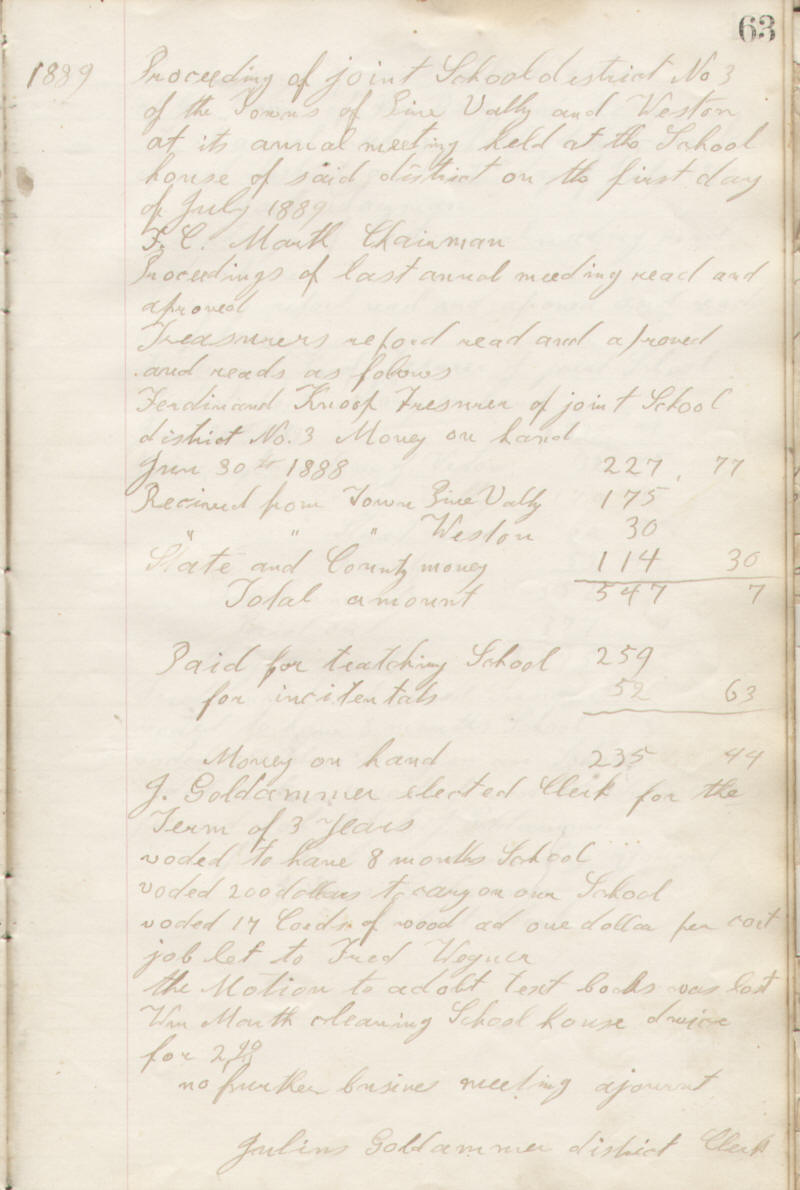 63
1889 Proceeding of joint School district No 3
of the Towns of Pine Vally and Weston
at its annual meeting held at the School
house of said district on the first day
of July 1889
F. C. Marth Chairman
Proceedings of last annual meeding read and
aproved
Treasurers repord read and aproved
and reads as folows
Ferdinand Knoop Tresurer of joint School
district No. 3 Money on hand
Jun 30th 1888 227, 77
Recived from Town Pine Vally 175
" " " Weston 30
State and County money 114 30
Total amount 547 7
Paid for teatching School 259
for incitentals 52 63
Money on hand 235 44
J. Goldammer elected Clerk for the
Term of 3 Years
voded to have 8 months School
voded 200 dollars to cary on our School
voded 17 Cords of wood ad one dollar per cort
job let to Fred Wegner
the Motion to adobt text books was lost
Wm Marth cleaning School house
for 2,
no further busines meeting ajournt
Julius Goldammer district Clerk